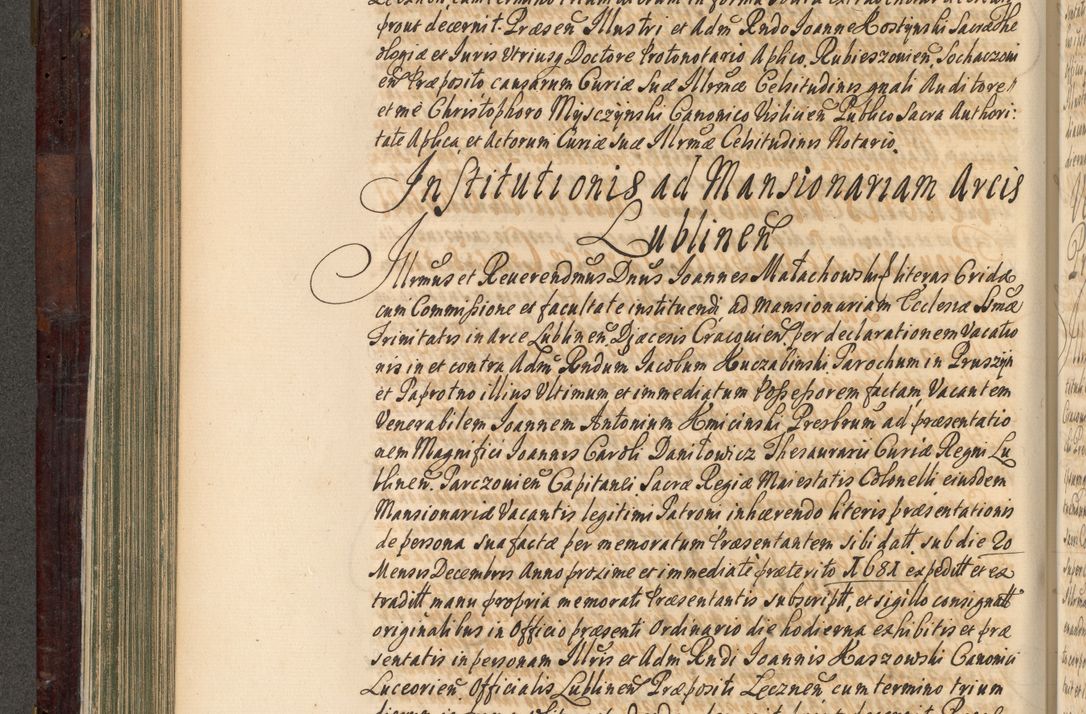 prout decernit. Præsen̄ Illustri et Adm̄ Rndo Joanne Kostynski Sacræ The
ologiæ et Juris Vtriusq Doctore Protonotario Aplico, Rubieszouien̄, Sochaczoui
en̄ Præposito causarum Curiæ Suæ Illrmæ Celsitudinis gnali Auditore
et me Christophoro Mysczÿnski Canonico Vislicien̄ Publico Sacra Authori:
tate Aplica, et Actorum Curiæ suæ Illrmæ Celsitudinis Notario.
Institutionis ad Mansionariam Arcis
Lublinen̄
Illrmus et Reuerendmus Dnus Joannes Małachowski literas Cridæ
cum Commissione et facultate instituendi ad Mansionariam Ecclesiæ Ssmæ
Trinitatis in Arce Lublinen̄ Diæcesis Cracouien̄ per declarationem Vacatio
nis in et contra Adm̄ Rndum Jacobum Kuczabinski Parochum in Pruszyn
et Paprotno illius Vltimum et immediatum Possessorem factam Vacantem
Venerabilem Joannem Antonium Kmicinski Presbrum ad præsentatio
nem Magnifici Joannis Caroli Daniłowicz Thesaurarii Curiæ Regni Lu
blinen̄. Parczouien̄ Capitanei. Sacræ Regiæ Maiestatis Colonelli eiusdem
Mansionariæ Vacantis legitimi Patroni inhærendo literis præsentationis
de persona sua factæ per memoratum Præsentantem sibi datt sub die 20
Mensis Decembris Anno proxime et immediate præterito 1681 expeditt et ex
traditt manu propria memorati Præsentantis subscriptt, et sigillo consignatt
originalibus in Officio præsenti Ordinario die hodierna exhibitis et præ
sentatis in personam Illris et Adm̄ Rndi Joannis Kaszowski Canonici
Luceorien̄ Officialis Lublinen̄ Præpositi Lecznen̄ cum termino trium